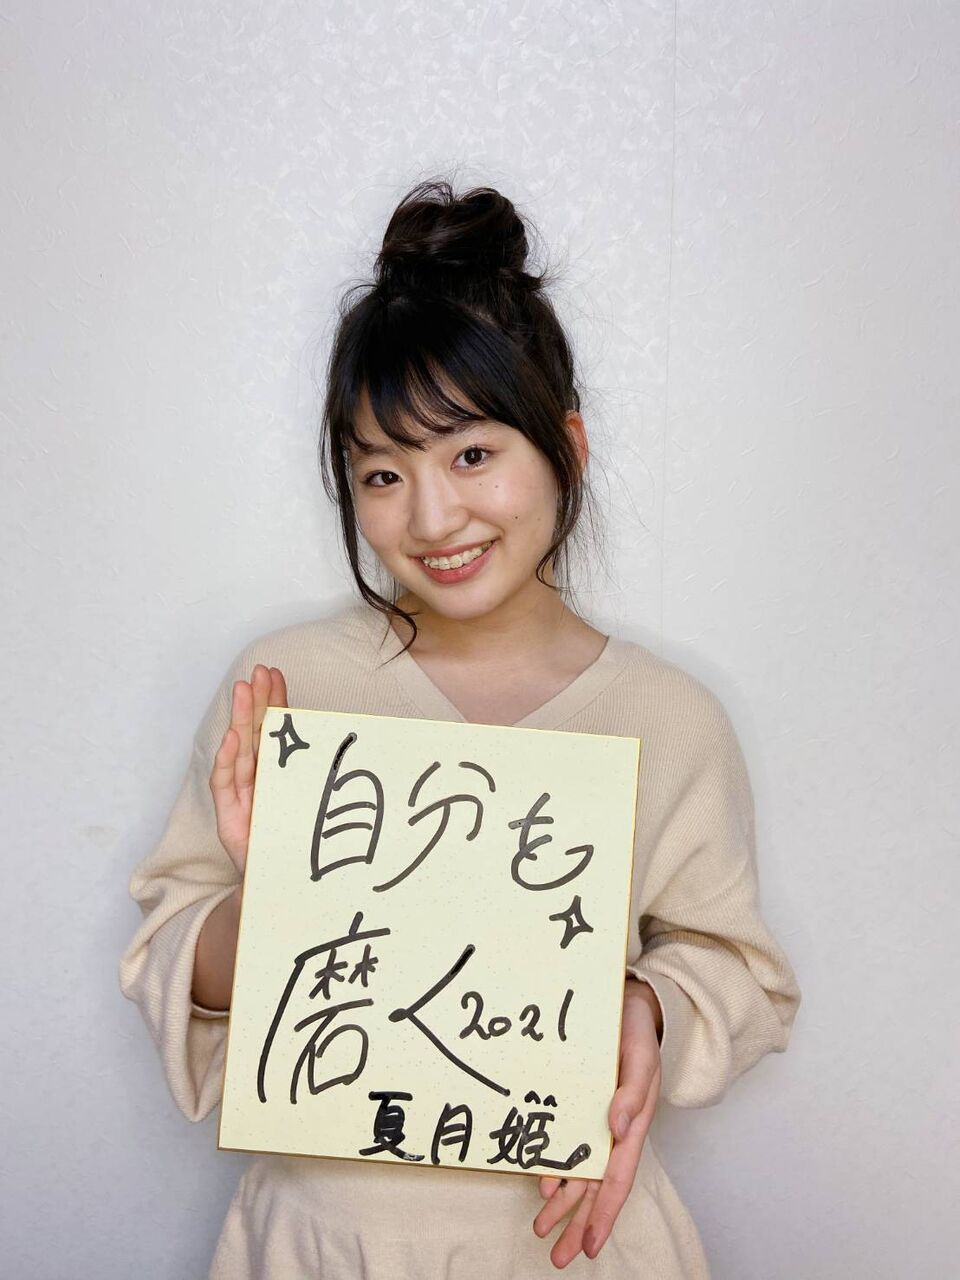 自分を
磨く2021
夏月姫